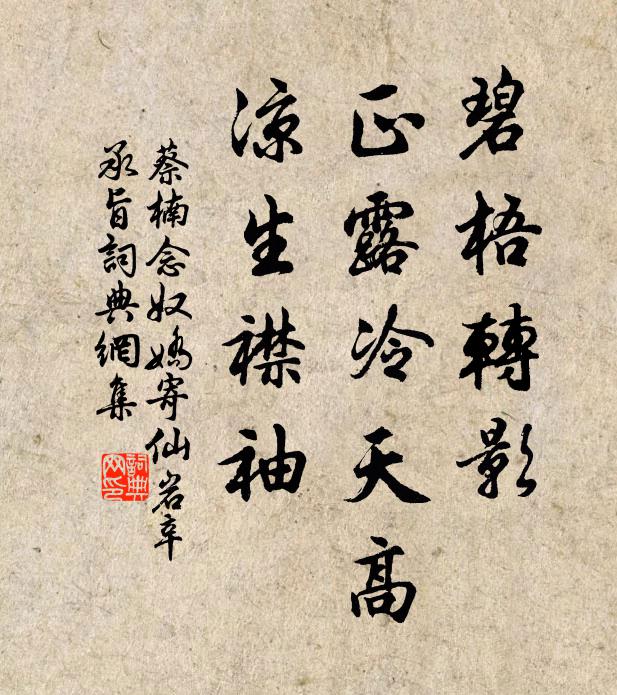 碧梧轉影
正露冷天高
涼生襟袖
蔡楠念奴嬌寄仙岩辛
承旨詞典網集
詞典
网印